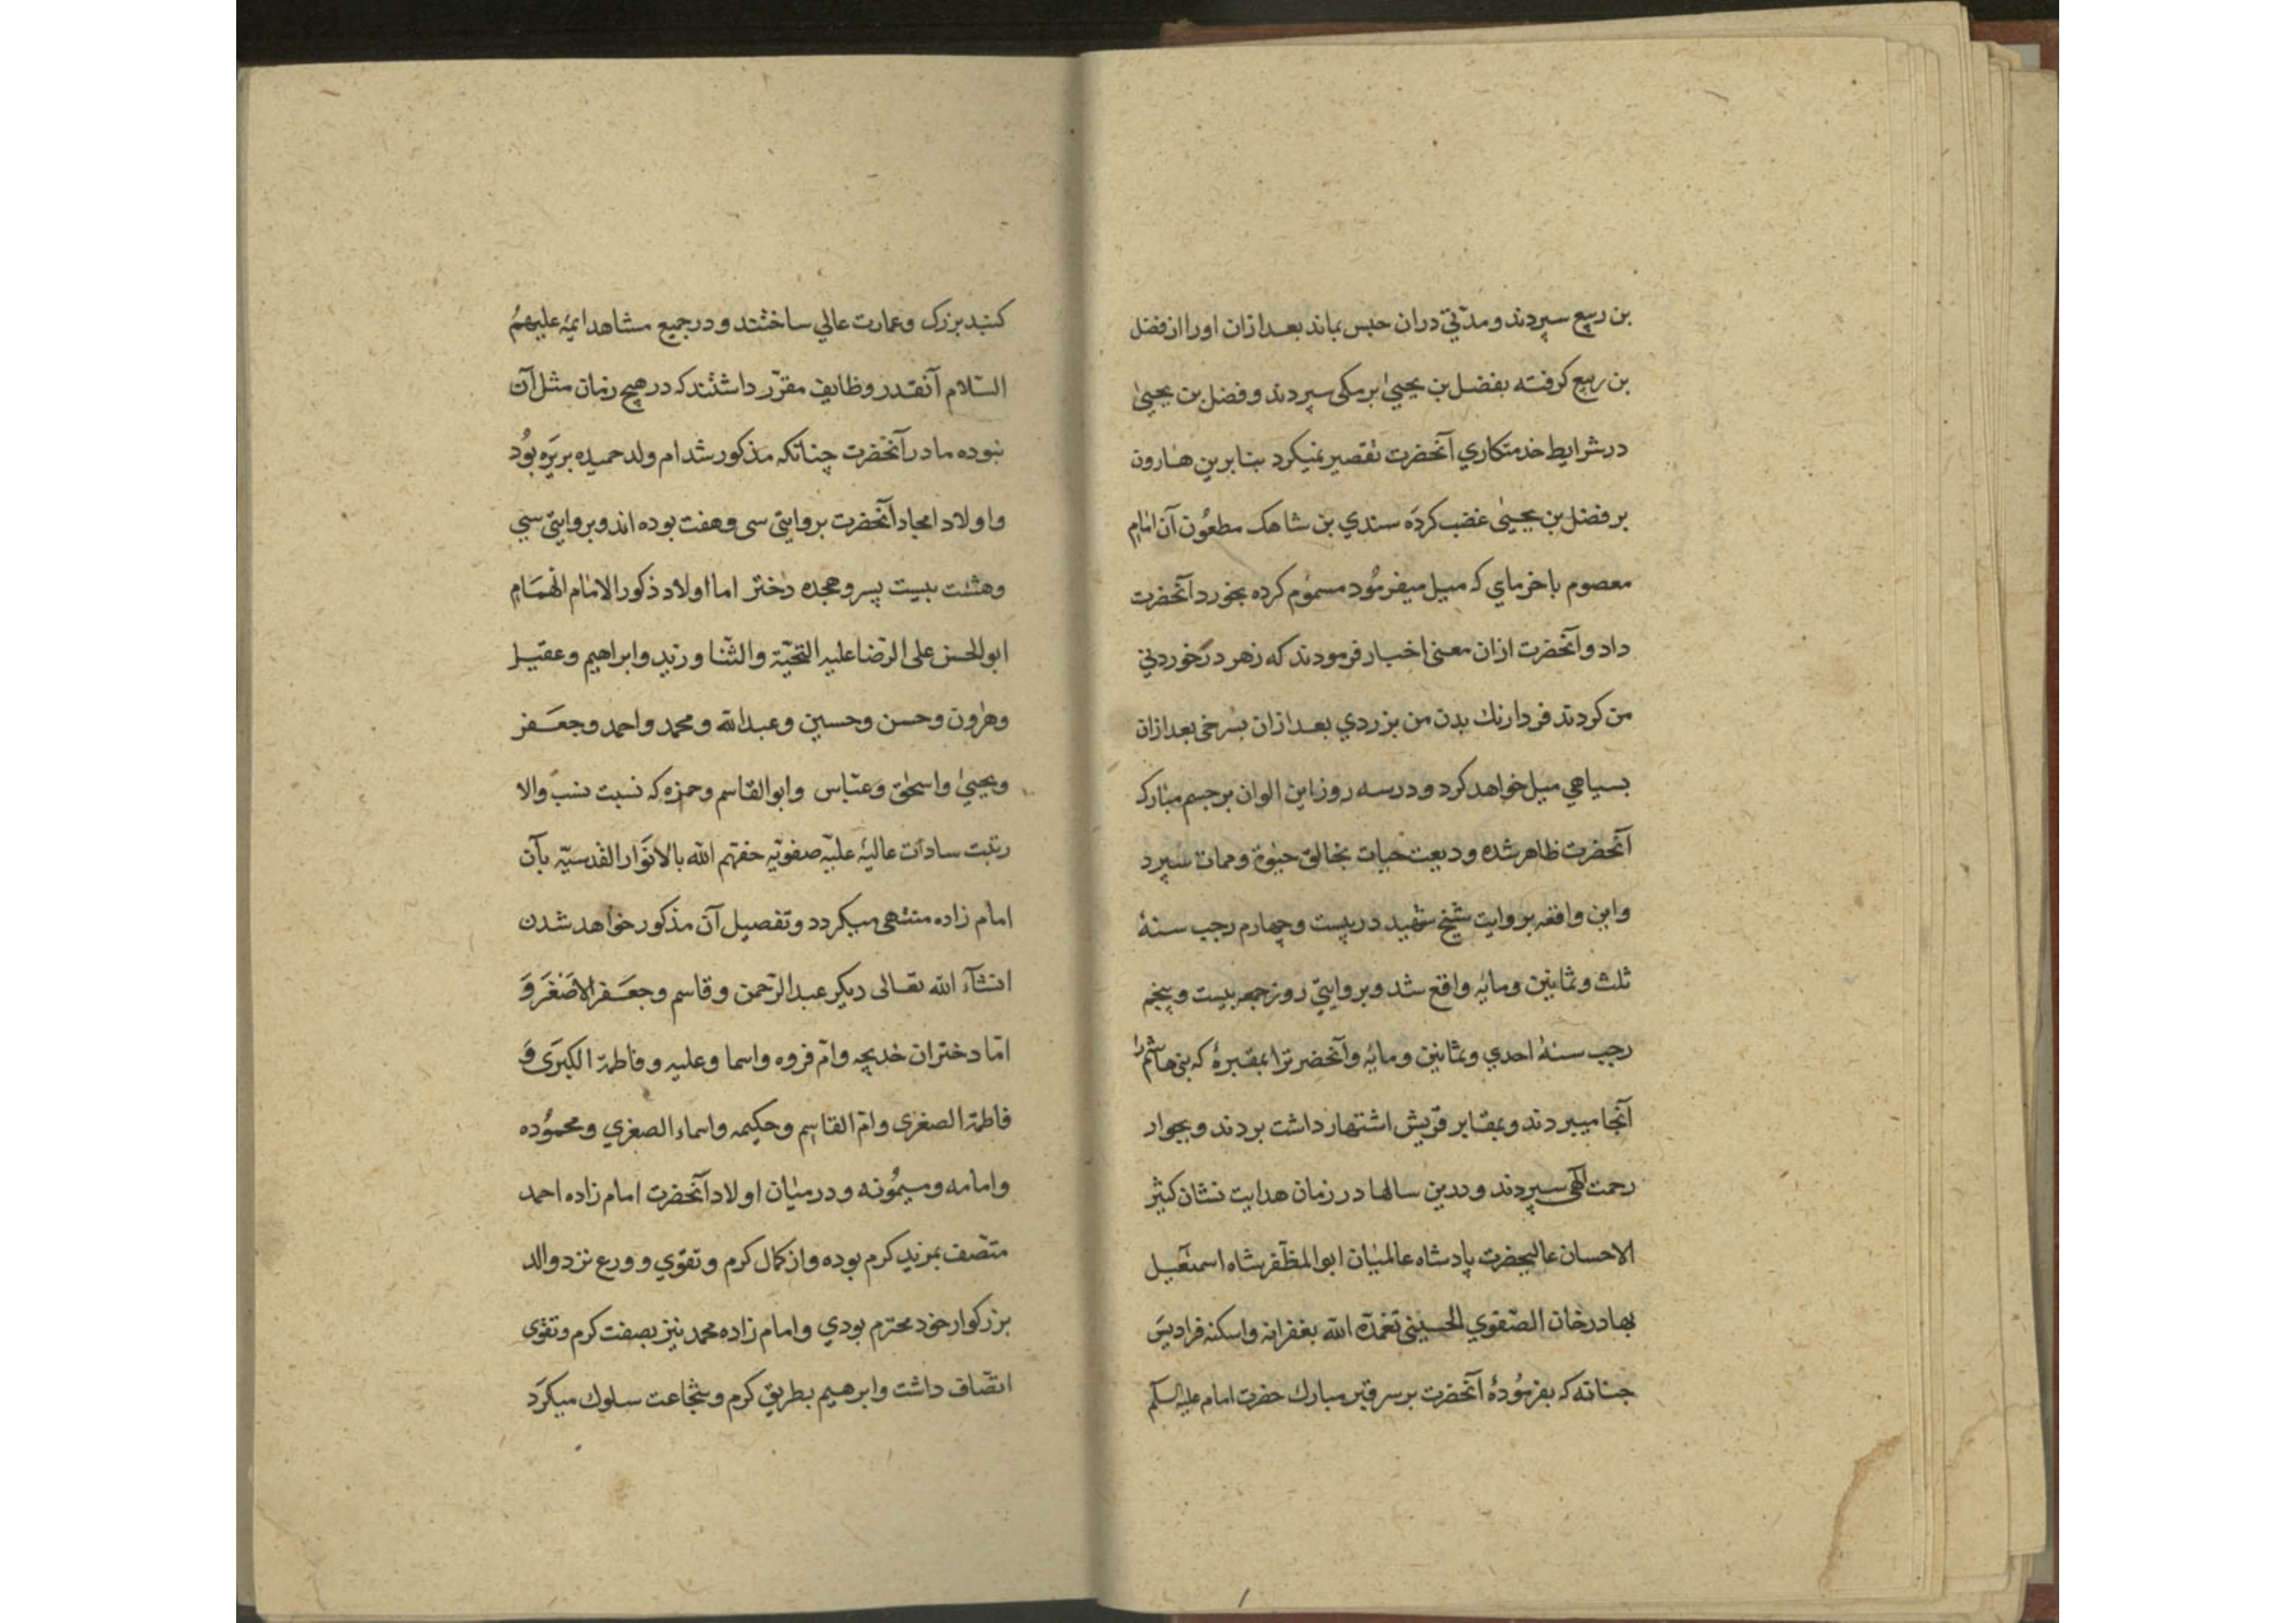 بن ربیع سپردند و مدّتی دران حبس بماند بعد ازان اورا از فضل
بن ربیع کرفته بفضل بن یحییٰ برمکی سپردند و فضل بن یحییٰ
در شرایط خدمتکاری آنحضرت تقصیر نمیکرد بنابرین هارون
بر فضل بن یحییٰ غضب کرده سندی بن شاهک مطعون آن امام
معصوم با خرمای که میل میفرمود مسموم کرده بخورد آنحضرت
داد و آنحضرت ازان معنی اخبار فرمودند که زهر در خوردنی
من کردند فردا رنك بدن من بزردی بعد ازان بسرخی بعد ازان
بسیاهی میل خواهد کرد و در سه روز این الوان بر جسم مبارک
آنحضرت ظاهر شده ودیعت حیات بخالق حیوة و ممات سپرد
و این واقعه بروایت شیخ شهید در بیست و چهارم رجب سنهٔ
ثلث و ثمانین و مایه واقع شد و بروایتی روز جمعه بیست و پنجم
رجب سنهٔ احدی و ثمانین و مایه و آنحضرترا بمقبرهٔ که بنی هاشم را
آنجا میبردند و بمقابر قریش اشتهار داشت بردند و بجوار
رحمت الٓهی سپردند و درین سالها در زمان هدایت نشان کثیر
الاحسان عالیحضرت پادشاه عالمیان ابو المظفر شاه اسمعیل
بهادر خان الصّفوی الحسینی تغمّده الله بغفرانه و اسکنه فرادیس
جنانه که بفرمودهٔ آنحضرت بر سر قبر مبارك حضرت امام علیه السلم
کنبد بزرک و عمارت عالی ساختند و در جمیع مشاهد ایمّه علیهم
السّلام آنقدر وظایف مقرّر داشتند که در هیچ زمان مثل آن
نبوده مادر آنحضرت چنانکه مذکور شد ام ولد حمیده بربریه بود
و اولاد امجاد آنحضرت بروایتی سی و هفت بوده اند و بروایتی سی
و هشت بیست پسر و هجده دختر اما اولاد ذکور الامام الهمام
ابو الحسن علی الرّضا علیه التحیّة و الثّنا و زید و ابراهیم و عقیل
و هرون و حسن و حسین و عبدالله و محمد و احمد و جعفر
و یحییٰ و اسحٰق و عبّاس و ابو القاسم و حمزه که نسبت نسب والا
رتبت سادات عالیهٔ علیّه صفویّه حفّهم الله بالانوار القدسیّه بآن
امام زاده منتهی میکردد و تفصیل آن مذکور خواهد شدن
انشآء الله تعالی دیکر عبدالرّحمن و قاسم و جعفر الاصغر وَ
امّا دختران خدیجه و امّ فروه و اسما و علیه و فاطمة الکبری وَ
فاطمة الصغری و امّ القاسم و حکیمه و اسماء الصغری و محموده
و امامه و میمونه و در میان اولاد آنحضرت امام زاده احمد
متّصف بمزید کرم بوده و از کمال کرم و تقوی و ورع نزد والد
بزرکوار خود محترم بودی و امام زاده محمد نیز بصفت کرم و تقوی
اتّصاف داشت و ابرهیم بطریق کرم و شجاعت سلوك میکرد